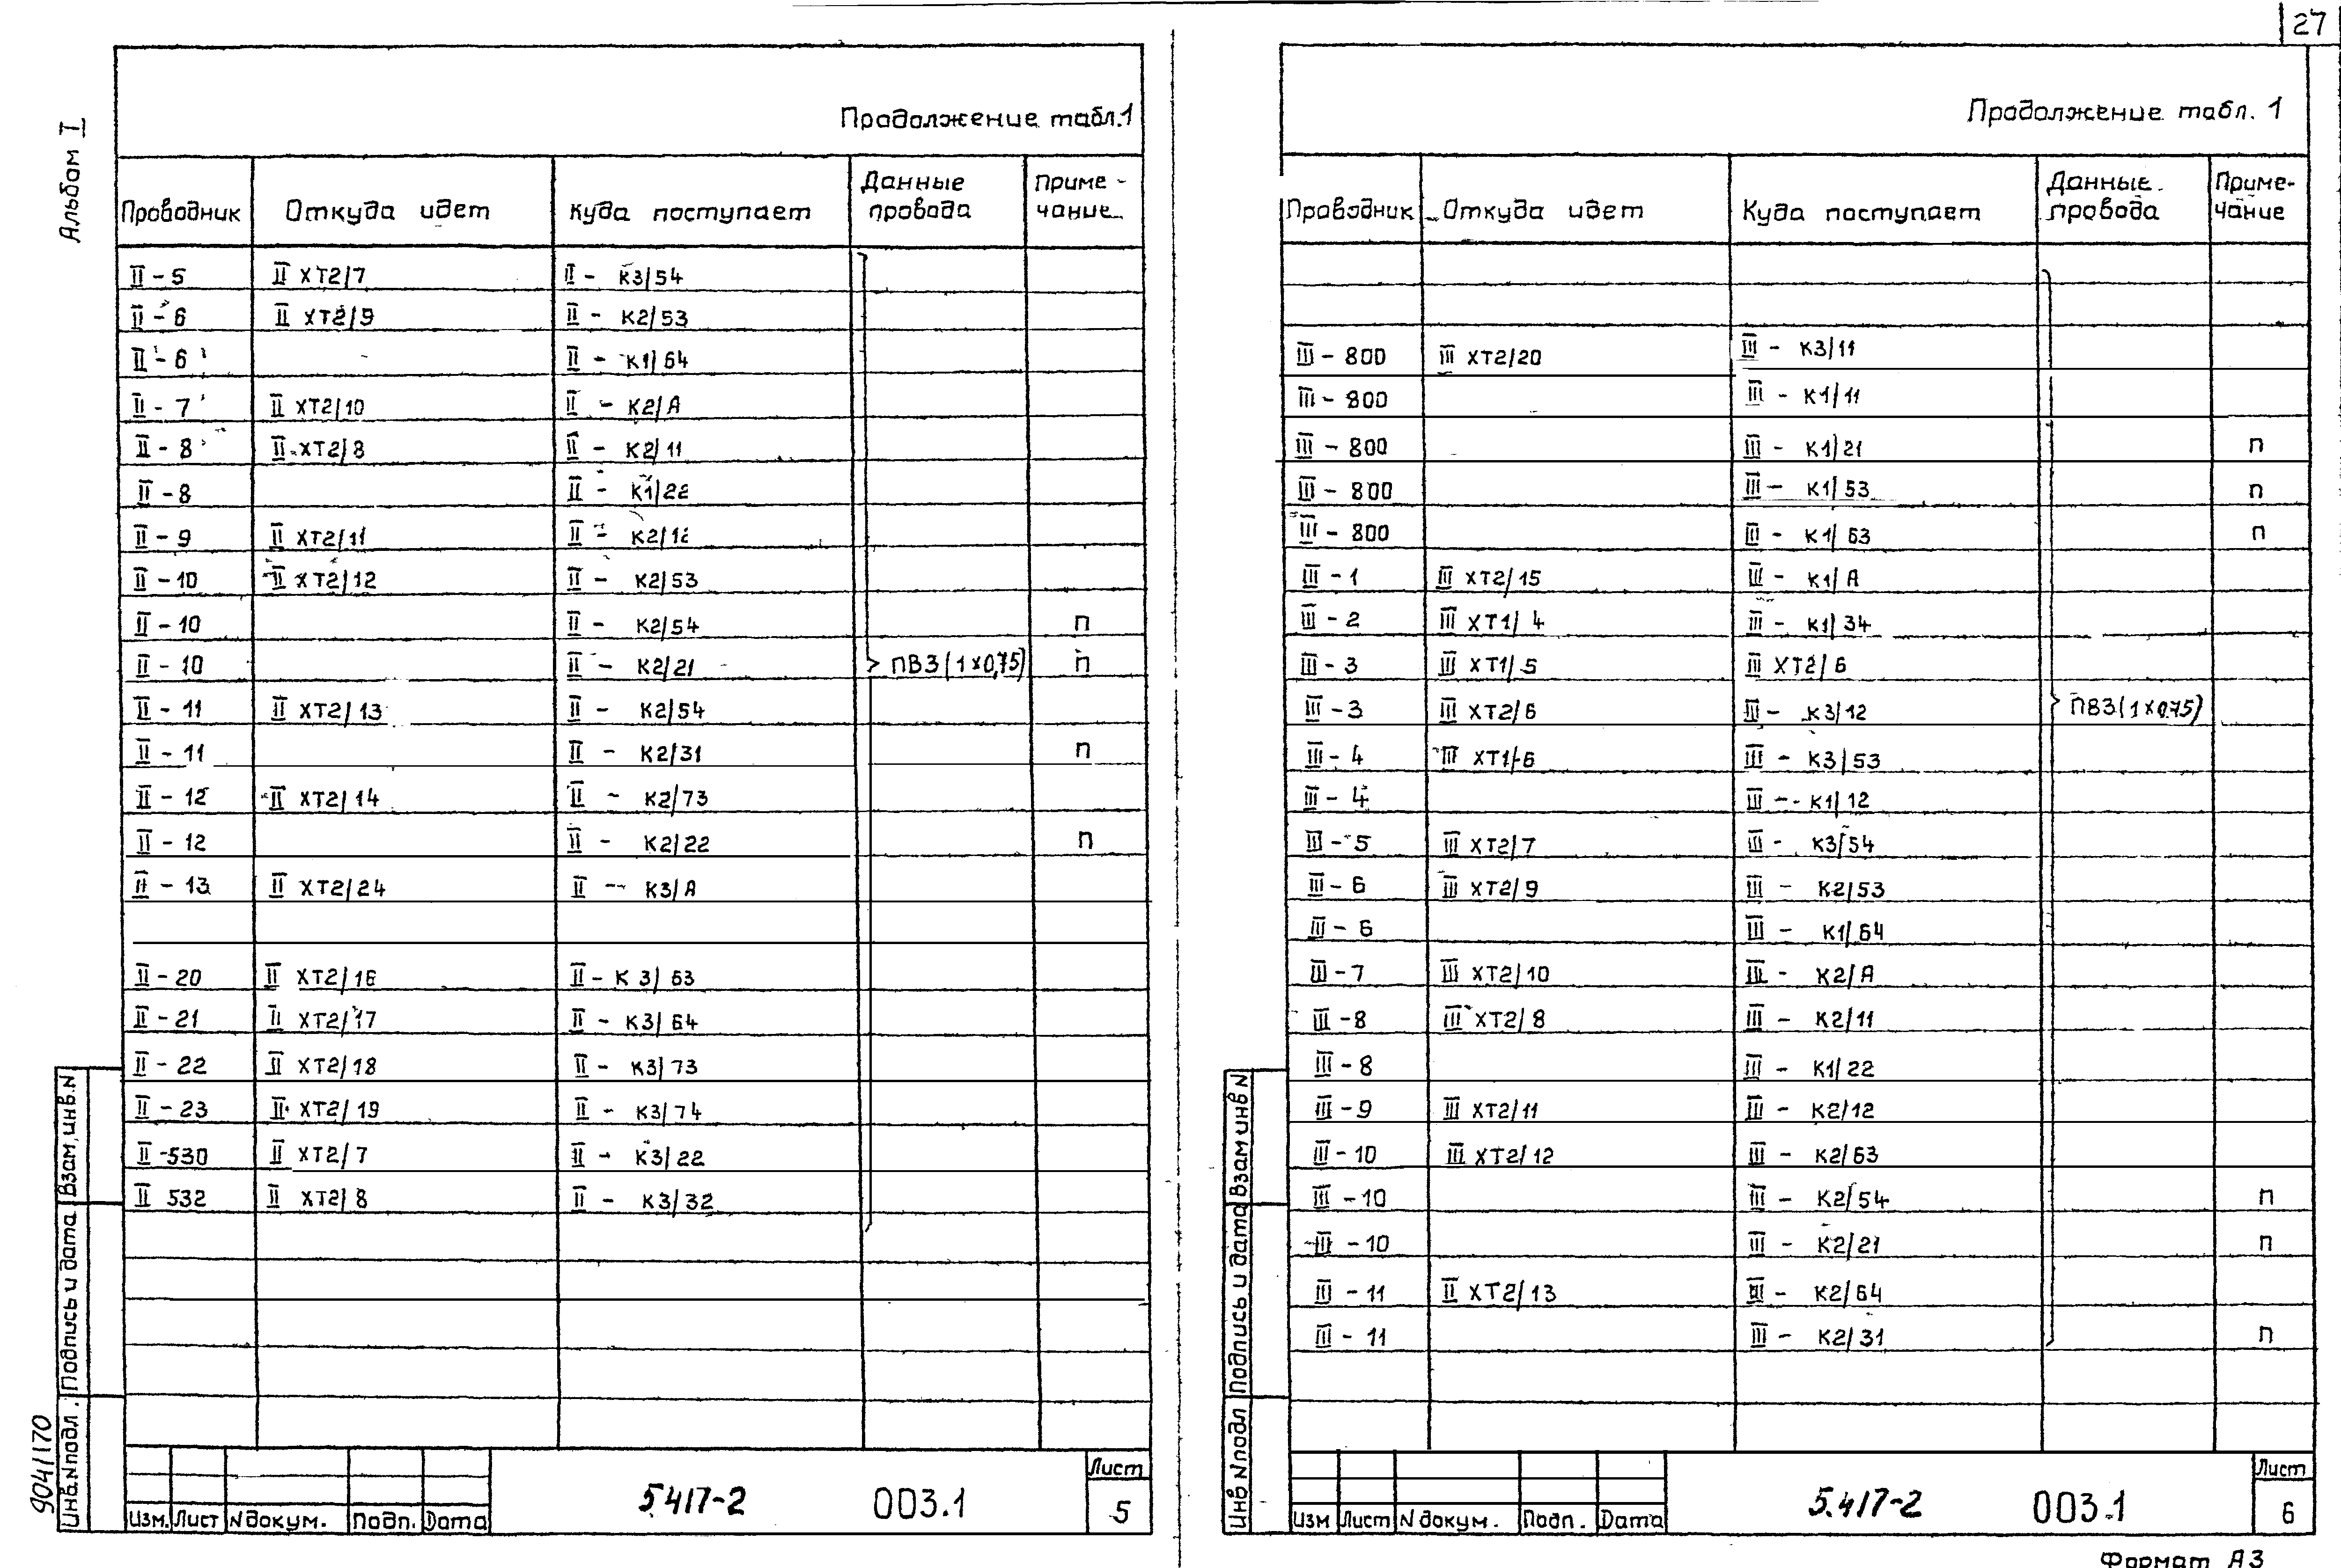 27
Альбом I
Продолжение табл.1
Проводник Откуда идет Куда поступает Данные провода Приме-чание
II - 5 II XT2/7 II - K3/54
II - 6 II XT2/9 II - K2/53
II - 6 II - K1/64
II - 7 II XT2/10 II - K2/A
II - 8 II XT2/8 II - K2/11
II - 8 II - K1/22
II - 9 II XT2/11 II - K2/12
II - 10 II XT2/12 II - K2/53
II - 10 II - K2/54 п
II - 10 II - K2/21 ПВ3(1x0,75) п
II - 11 II XT2/13 II - K2/54
II - 11 II - K2/31 п
II - 12 II XT2/14 II - K2/73
II - 12 II - K2/22 п
II - 13 II XT2/24 II - K3/A
II - 20 II XT2/16 II - K3/63
II - 21 II XT2/17 II - K3/64
II - 22 II XT2/18 II - K3/73
II - 23 II XT2/19 II - K3/74
II - 530 II XT2/7 II - K3/22
II 532 II XT2/8 II - K3/32
Взам.инв.N
Подпись и дата
Инв.Nподл.
9041170
Изм. Лист N докум. Подп. Дата
5417-2 003.1
Лист
5
Продолжение табл. 1
Проводник Откуда идет Куда поступает Данные провода Приме-чание
III - 800 III XT2/20 III - K3/11
III - 800 III - K1/11
III - 800 III - K1/21 п
III - 800 III - K1/53 п
III - 800 III - K1/63 п
III - 1 III XT2/15 III - K1/A
III - 2 III XT1/4 III - K1/34
III - 3 III XT1/5 III XT2/6
III - 3 III XT2/6 III - K3/12 ПВ3(1x0.75)
III - 4 III XT1/6 III - K3/53
III - 4 III - K1/12
III - 5 III XT2/7 III - K3/54
III - 6 III XT2/9 III - K2/53
III - 6 III - K1/64
III - 7 III XT2/10 III - K2/A
III - 8 III XT2/8 III - K2/11
III - 8 III - K1/22
III - 9 III XT2/11 III - K2/12
III - 10 III XT2/12 III - K2/63
III - 10 III - K2/54 п
III - 10 III - K2/21 п
III - 11 II XT2/13 III - K2/64
III - 11 III - K2/31 п
Взам инв N
Подпись и дата
Инв N подл
Изм Лист N докум. Подп. Дата
5.417-2 003.1
Лист
6
Формат А3